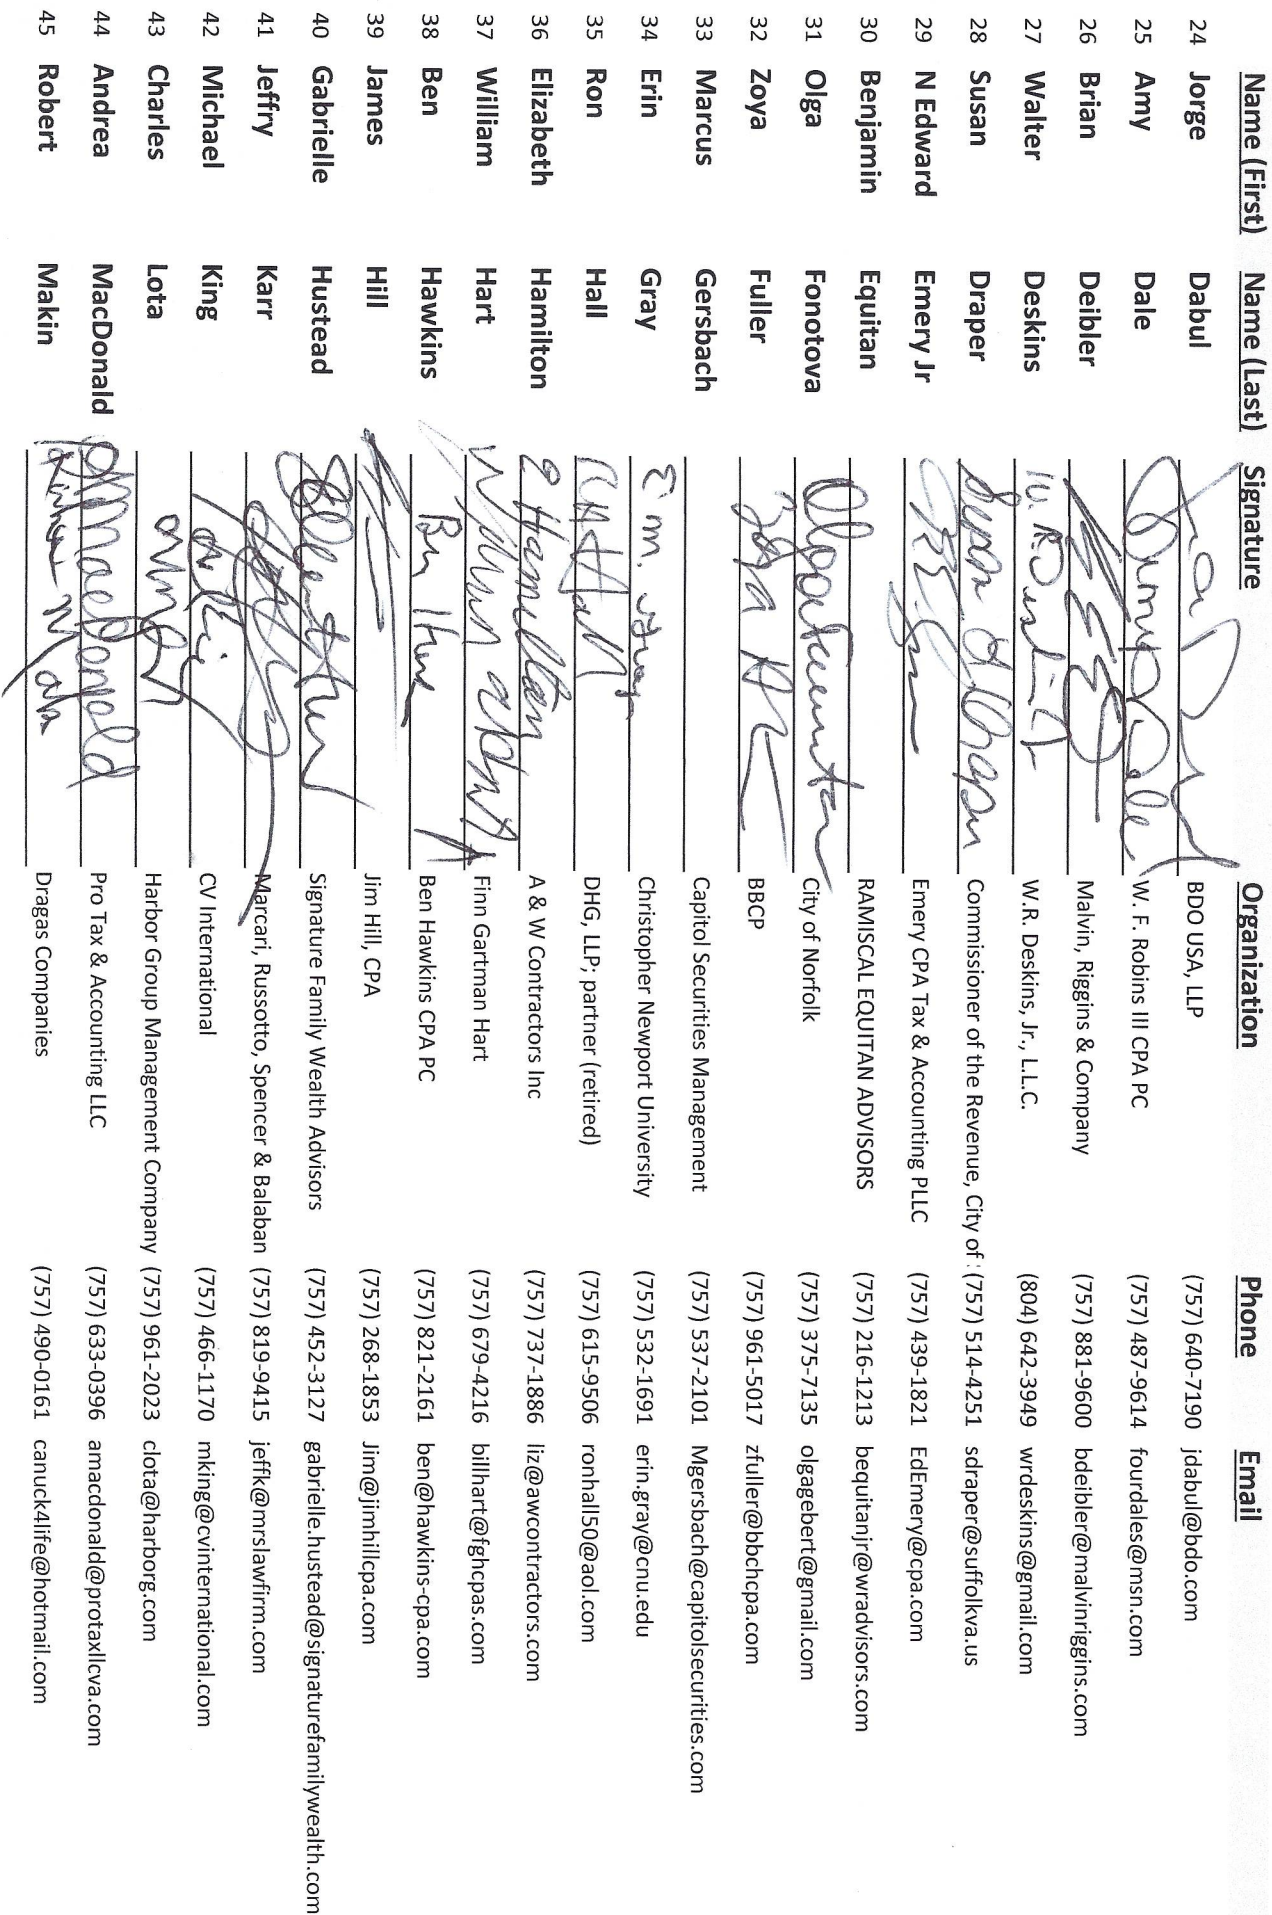 Name (First) Name (Last) Signature Organization Phone Email
24 Jorge Dabul BDO USA, LLP (757) 640-7190 jdabul@bdo.com
25 Amy Dale Dale W. F. Robins III CPA PC (757) 487-9614 fourdales@msn.com
26 Brian Deibler Malvin, Riggins & Company (757) 881-9600 bdeibler@malvinriggins.com
27 Walter Deskins W.R. Deskins, Jr., L.L.C. (804) 642-3949 wrdeskins@gmail.com
28 Susan Draper Susan Draper Commissioner of the Revenue, City of (757) 514-4251 sdraper@suffolkva.us
29 N Edward Emery Jr Emery CPA Tax & Accounting PLLC (757) 439-1821 EdEmery@cpa.com
30 Benjamin Equitan RAMISCAL EQUITAN ADVISORS (757) 216-1213 bequitanjr@wradvisors.com
31 Olga Fonotova City of Norfolk (757) 375-7135 olgagebert@gmail.com
32 Zoya Fuller Zoya BBCP (757) 961-5017 zfuller@bbchcpa.com
33 Marcus Gersbach Capitol Securities Management (757) 537-2101 Mgersbach@capitolsecurities.com
34 Erin Gray E.m. Gray Christopher Newport University (757) 532-1691 erin.gray@cnu.edu
35 Ron Hall Hall DHG, LLP; partner (retired) (757) 615-9506 ronhall50@aol.com
36 Elizabeth Hamilton E Hamilton A & W Contractors Inc (757) 737-1886 liz@awcontractors.com
37 William Hart Finn Gartman Hart (757) 679-4216 billhart@fghcpas.com
38 Ben Hawkins Ben Hawkins CPA PC (757) 821-2161 ben@hawkins-cpa.com
39 James Hill Jim Hill, CPA (757) 268-1853 Jim@jimhillcpa.com
40 Gabrielle Hustead Signature Family Wealth Advisors (757) 452-3127 gabrielle.hustead@signaturefamilywealth.com
41 Jeffry Karr Marcari, Russotto, Spencer & Balaban (757) 819-9415 jeffk@mrslawfirm.com
42 Michael King CV International (757) 466-1170 mking@cvinternational.com
43 Charles Lota Harbor Group Management Company (757) 961-2023 clota@harborg.com
44 Andrea MacDonald MacDonald Pro Tax & Accounting LLC (757) 633-0396 amacdonald@protaxllcva.com
45 Robert Makin Dragas Companies (757) 490-0161 canuck4life@hotmail.com